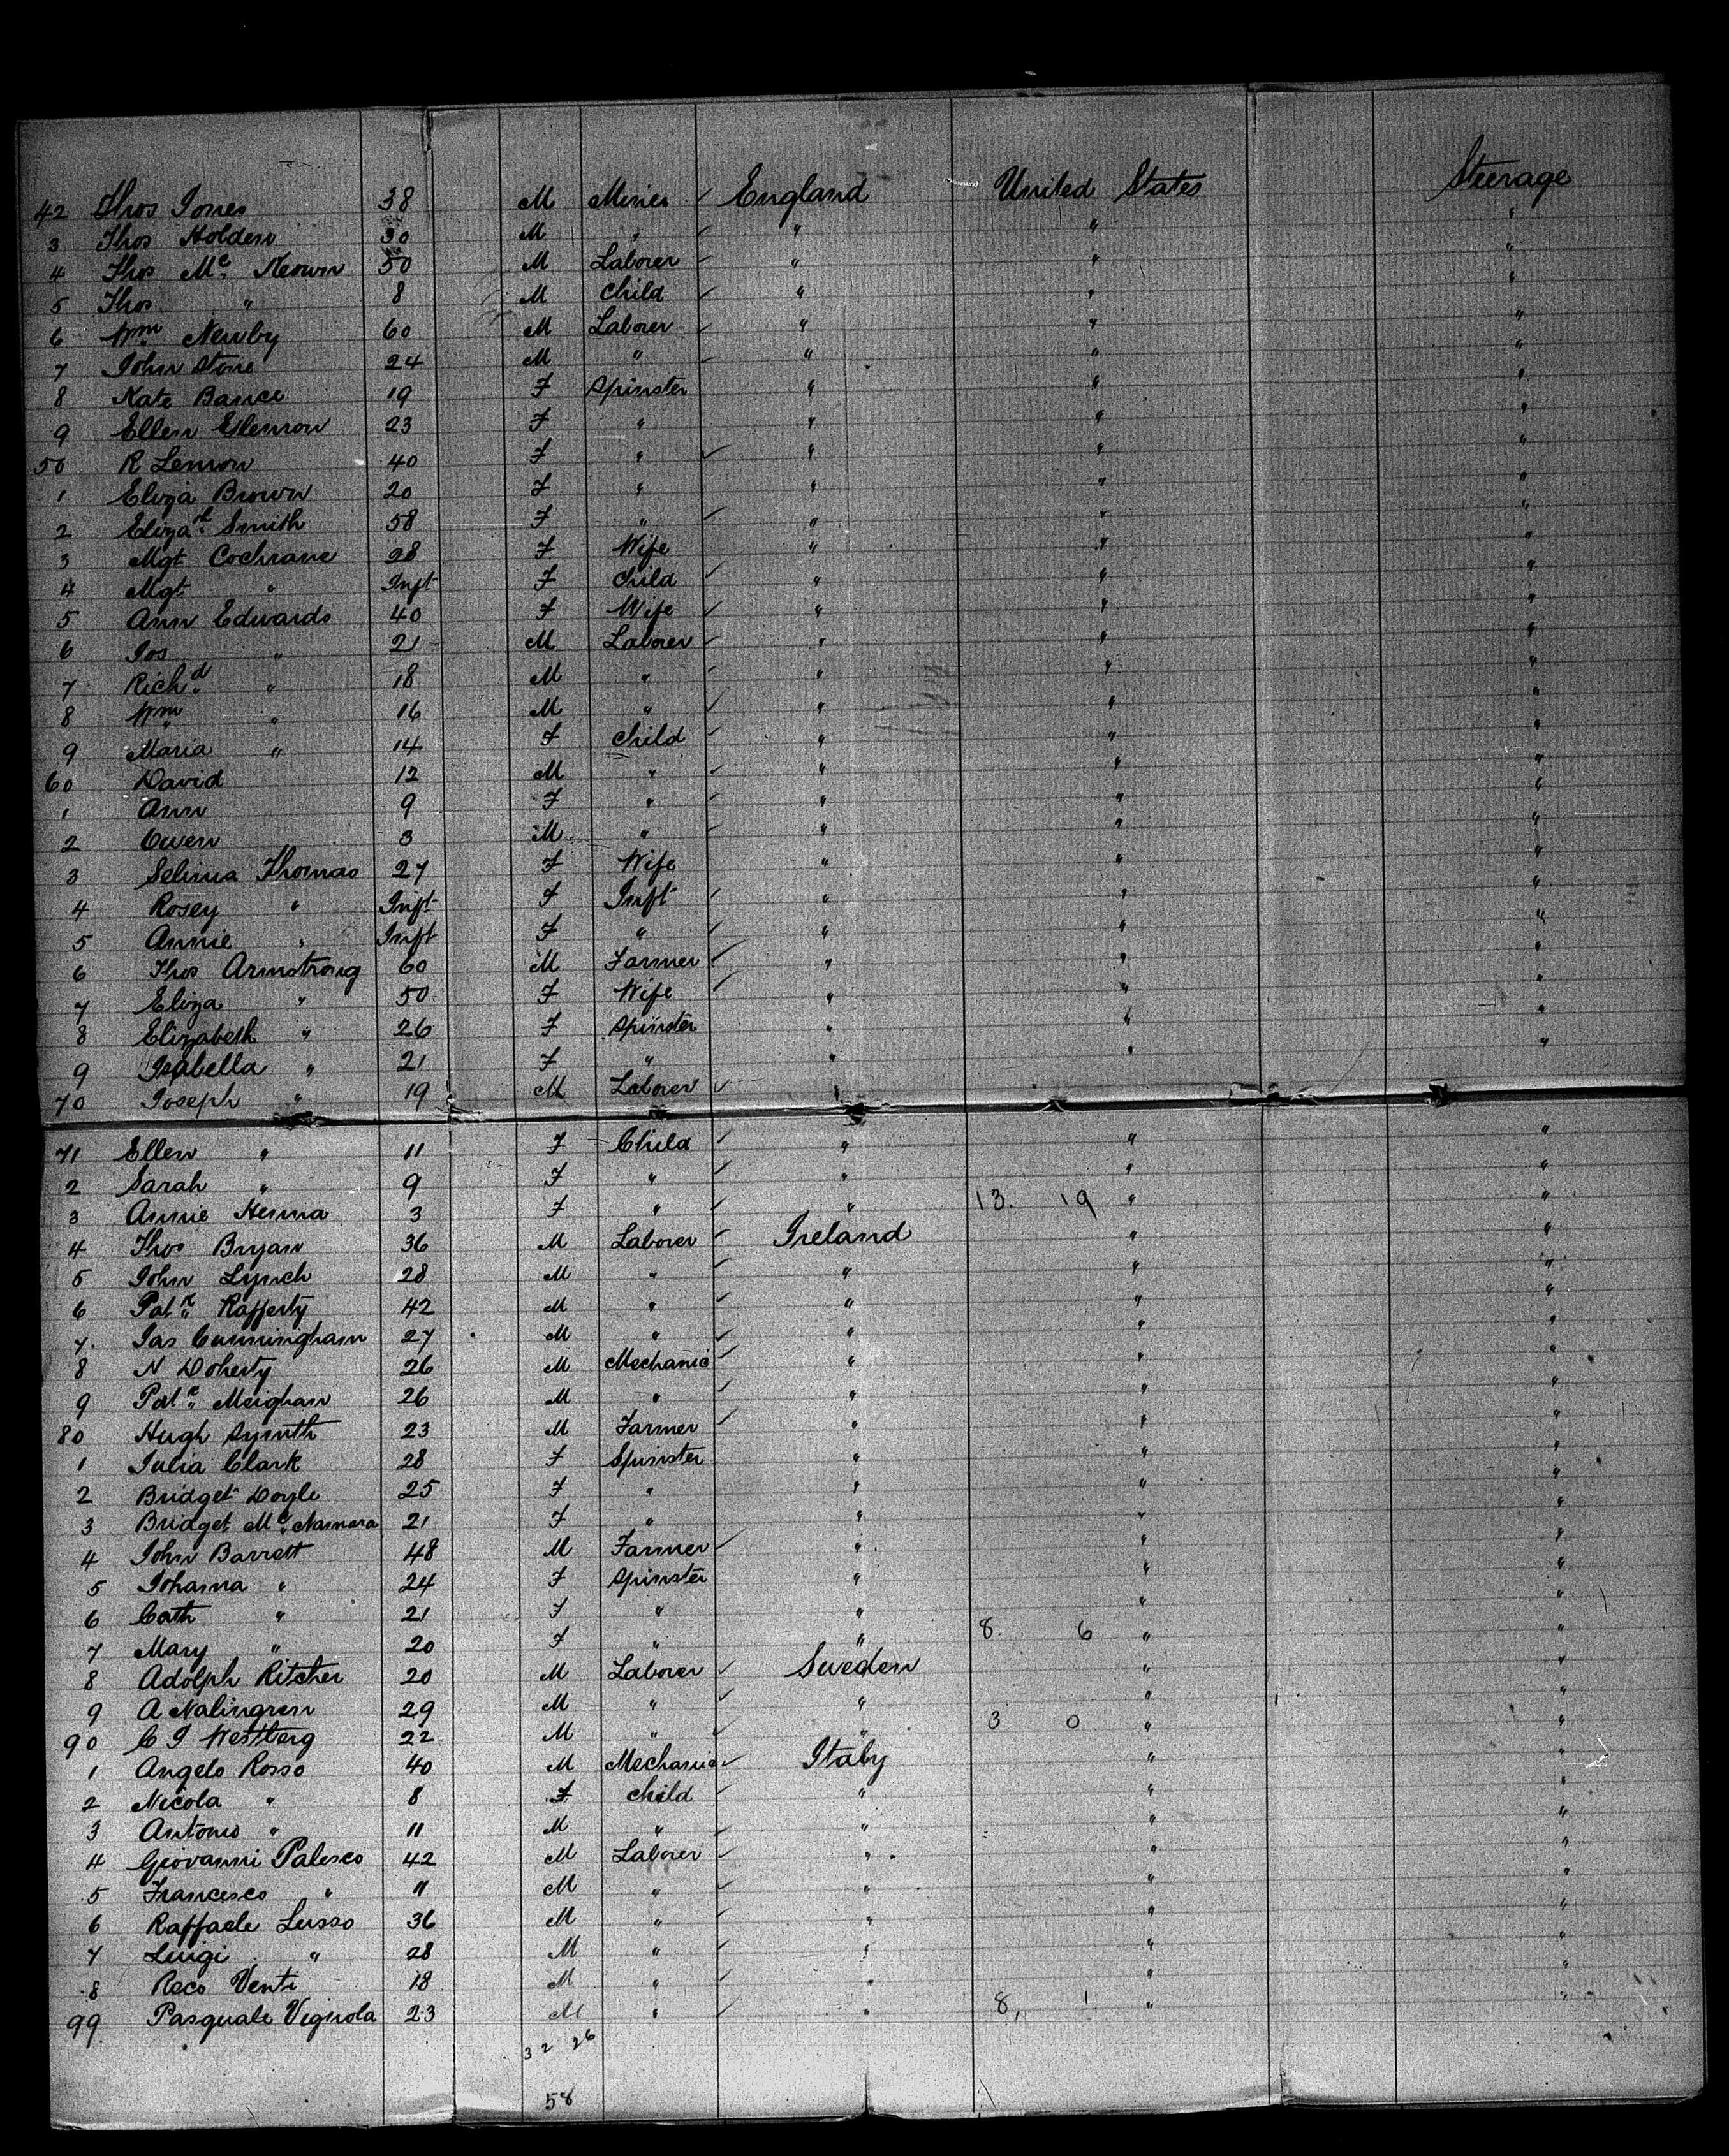 42 Thos Jones 38 M Miner ✓ England United States Steerage
3 Thos Holden 30 M " ✓ " " "
4 Thos Mc Keown 50 M Laborer ✓ " " "
5 Thos " 8 M Child ✓ " " "
6 Wm Newby 60 M Laborer ✓ " " "
7 John Stone 24 M " ✓ " " "
8 Kate Bance 19 F Spinster " " "
9 Ellen 23 F " " " "
50 R Lemon 40 F " ✓ " " "
1 Eliza Brown 20 F " " " "
2 Elizath Smith 58 F " ✓ " " "
3 Mgt Cochrane 28 F Wife " " "
4 Mgt " Inft F Child ✓ " " "
5 Ann Edwards 40 F Wife ✓ " " "
6 Jos " 21 M Laborer ✓ " " "
7 Richd " 18 M " ✓ " " "
8 Wm " 16 M " ✓ " " "
9 Maria " 14 F Child ✓ " " "
60 David 12 M " ✓ " " "
1 Ann 9 F " ✓ " " "
2 Owen 3 M " ✓ " " "
3 Selina Thomas 27 F Wife " " "
4 Rosey " Inft F Inft ✓ " " "
5 Annie " Inft F " ✓ " " "
6 Thos Armstrong 60 M Farmer ✓ " " "
7 Eliza " 50 F Wife ✓ " " "
8 Elizabeth " 26 F Spinster " " "
9 Isabella " 21 F " " " "
70 Joseph " 19 M Laborer ✓
71 Ellen " 11 F Child ✓ " " "
2 Sarah " 9 F " ✓ " " "
3 Annie Henna 3 F " ✓ " 13. 19 " "
4 Thos Bryan 36 M Laborer ✓ Ireland " "
5 John Lynch 28 M " ✓ " " "
6 Patk Rafferty 42 M " ✓ " " "
7. Jas Cunningham 27 M " ✓ " " "
8 N Doherty 26 M Mechanic ✓ " " "
9 Patk Meighan 26 M " ✓ " " "
80 Hugh Smyth 23 M Farmer ✓ " " "
1 Julia Clark 28 F Spinster " " "
2 Bridget Doyle 25 F " " " "
3 Bridget Mc Namara 21 F " " " "
4 John Barrett 48 M Farmer ✓ " " "
5 Johanna " 24 F Spinster " " "
6 Cath " 21 F " " " "
7 Mary " 20 F " " 8. 6 " "
8 Adolph Ritcher 20 M Laborer ✓ Sweden " "
9 A Nalingren 29 M " ✓ " " "
90 C J Westberg 22 M " ✓ " 3 0 " "
1 Angelo Rosso 40 M Mechanic ✓ Italy " "
2 Nicola " 8 F Child ✓ " " "
3 Antonio " 11 M " ✓ " " "
4 Giovanni Palesco 42 M Laborer ✓ " " "
5 Francesco " 11 M " ✓ " " "
6 Raffaele Lusso 36 M " ✓ " " "
7 Luigi " 28 M " ✓ " " "
8 Roco Venti 18 M " ✓ " " "
99 Pasquale Vignola 23 M " ✓ " 8, 1 " "
32 26
58